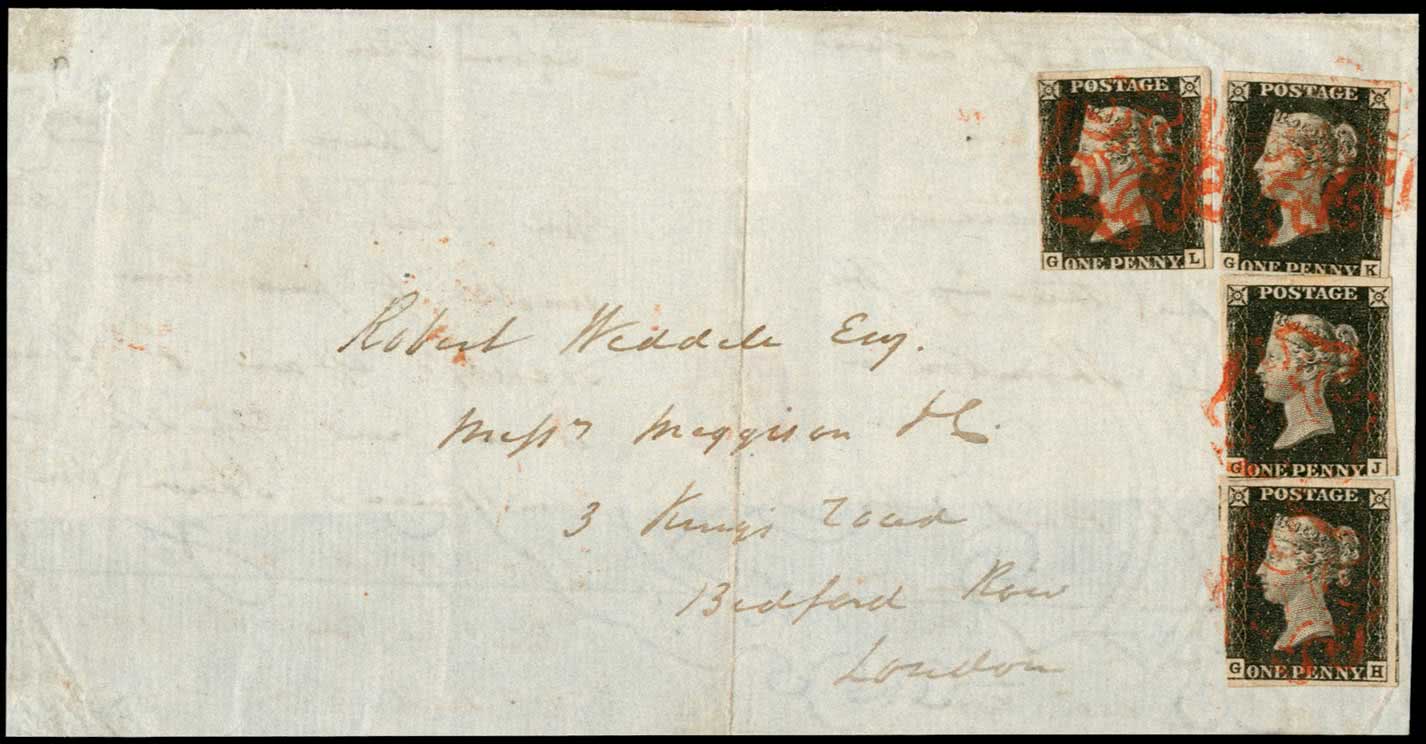 POSTAGE
G ONE PENNY L
POSTAGE
G ONE PENNY K
POSTAGE
G ONE PENNY J
POSTAGE
G ONE PENNY H
Robert Weddell Esq.
Messrs Meggison &C.
3 Kings road
Bedford Row
London